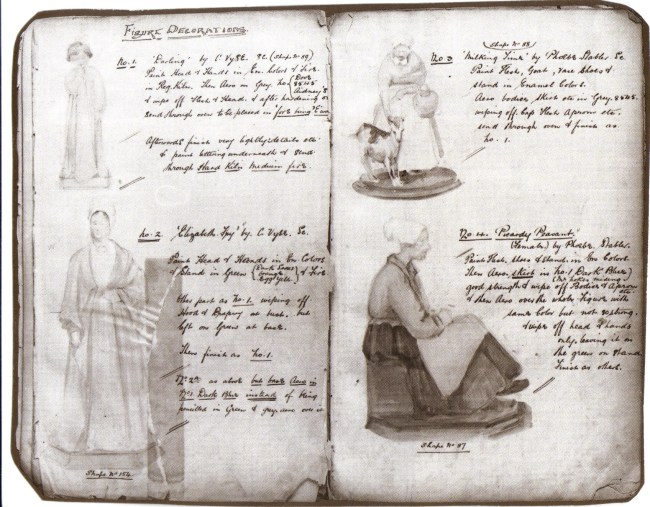 FIGURE DECORATIONS.
No. 1. "Darling" by C Vyse. Sc. (Shape No 89)
Paint Head & Hands in En. Colors & Fire
in Reg. Kiln. Then Aero in Grey. No.
& wipe off Flesh & Hands & after hardening on
send through oven to be placed in
Afterwards finish very lightly details etc
& paint lettering underneath & send
through Hard Kiln Medium fire.
No. 2. "Elizabeth Fry" by C. Vyse. Sc.
Paint Head & Hands in En Colors
& Stand in Green & Fire
then part as No. 1. wiping off
Hood & Drapery at bust. but
left on Green at base.
Then finish as No. 1.
No 2a. as above but base Aero in
No 1 Dark Blue instead of being
pencilled in Green & grey aero over it
Shape No 154.
(Shape No 88)
No. 3 "Milking Time" by Phoebe Stabler. Sc
Paint Flesh, Goat, Face Shoes &
stand in Enamel Colors.
Aero bodice, Skirt etc in Grey.
wiping off Cap Flesh Apron etc.
send through oven & finish as
No. 1.
No. 4. "Picardy Peasant"
(Female) by Phoebe Stabler.
Paint Flesh, shoes & stand in En Colors.
Then Aero skirt in No. 1 Dark Blue
good strength & wipe off Bodice & Apron etc.
& then Aero over the whole Figure with
same color but not so strong.
& wipe off head & hands
only, leaving it on
the green on stand
Finish as others.
Shape No 87